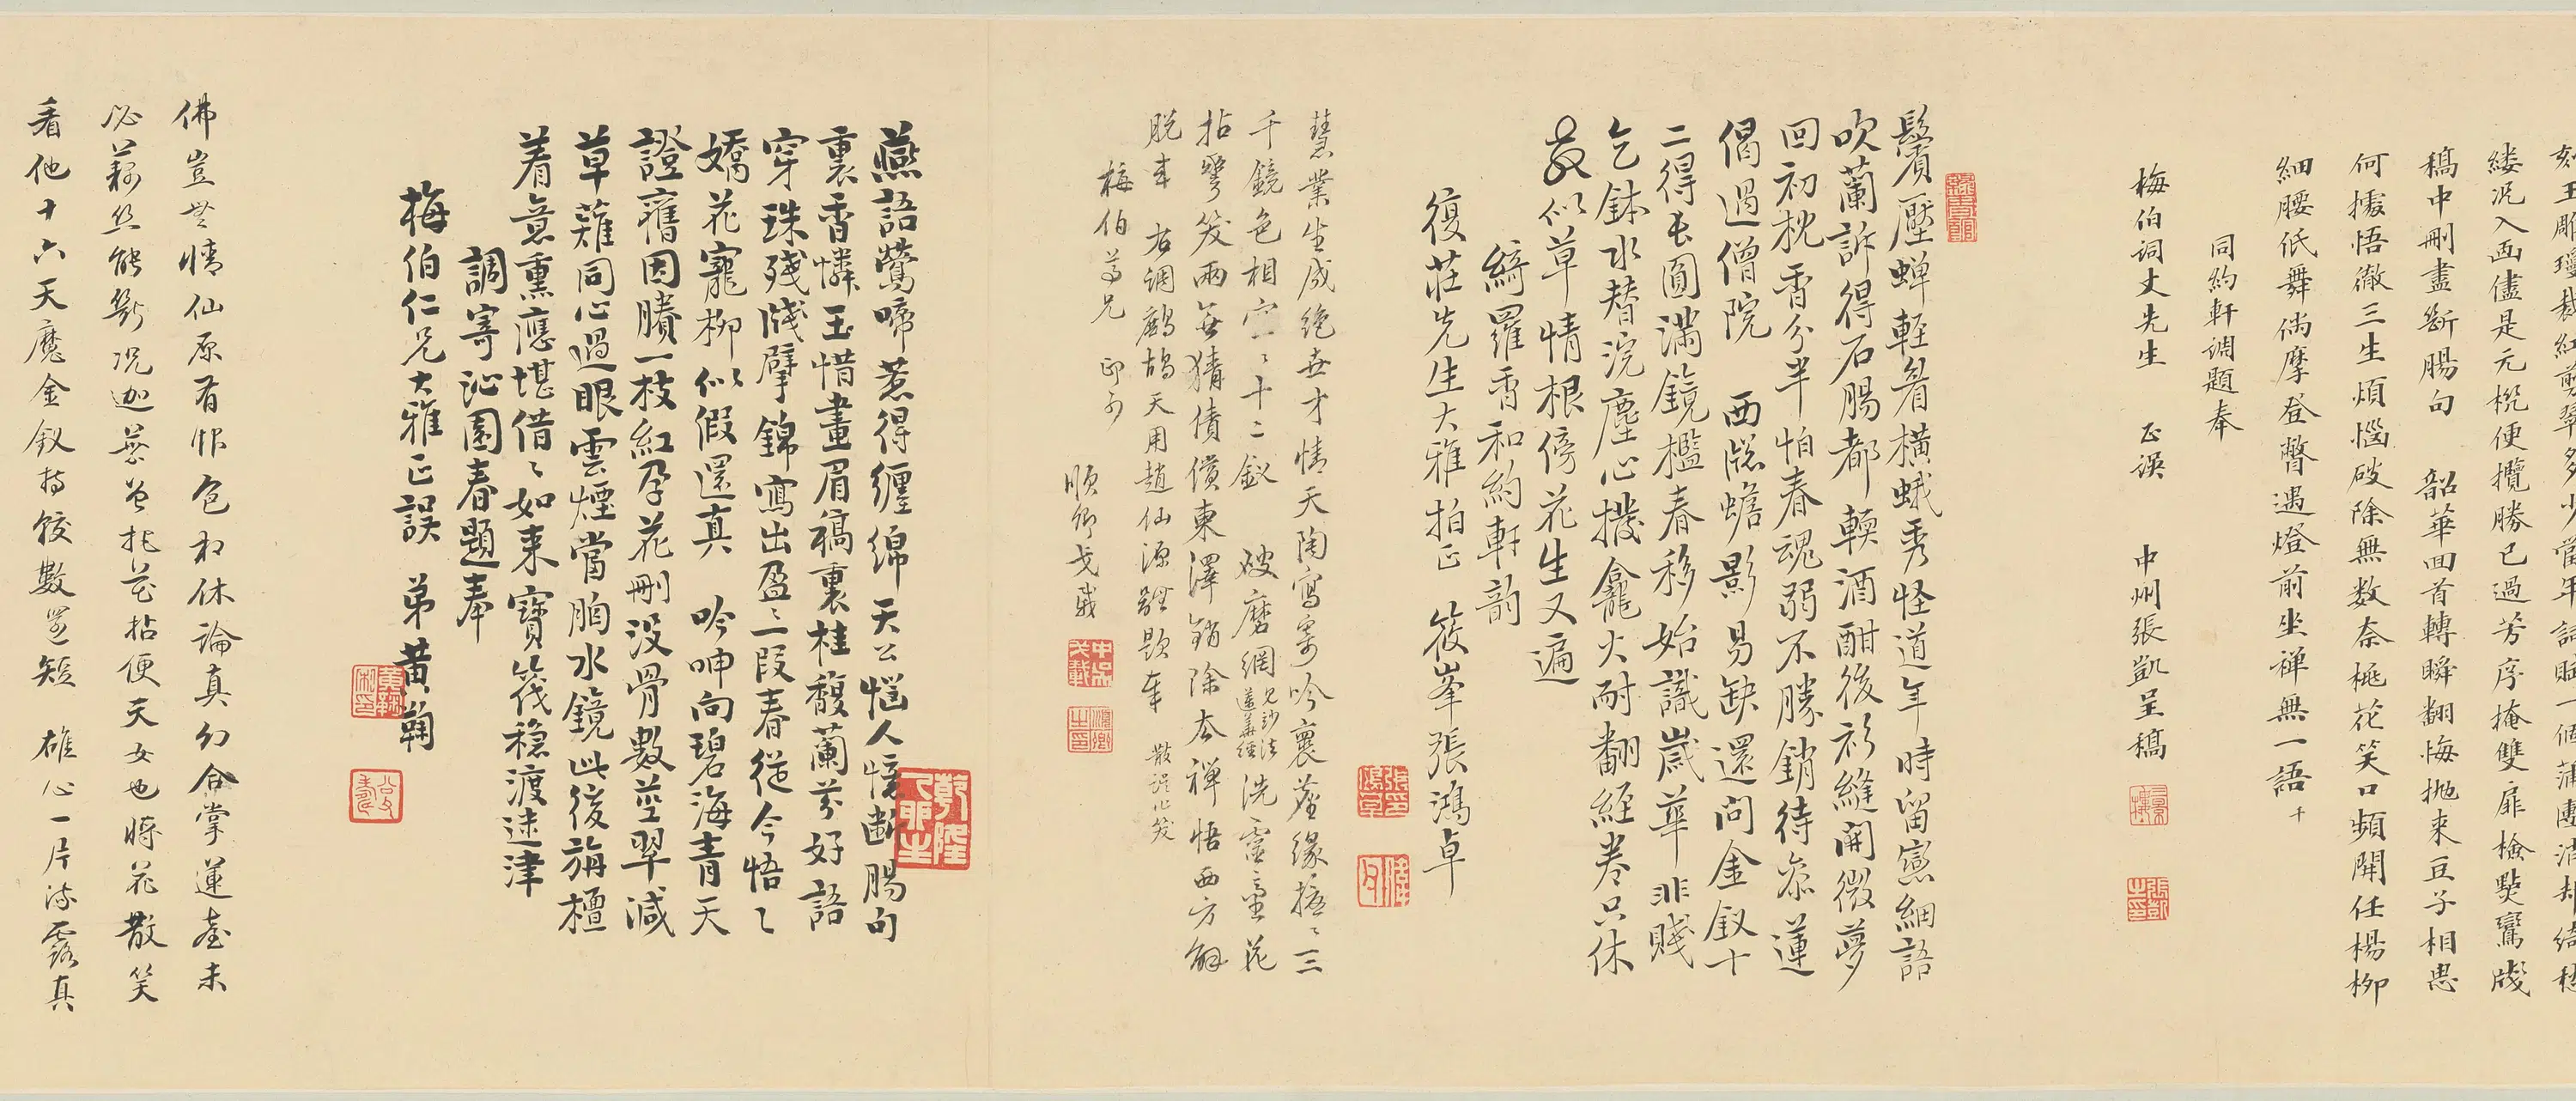 縷況入画儘是元機便攬勝已過芳序掩雙扉檢點鸞牋
稿中刪盡斷腸句　韶華回首轉瞬翻悔拋来豆子相思
何據悟徹三生煩惱破除無数奈桃花笑口頻開任楊柳
細腰低舞倘摩登瞥遇燈前坐禅無一語
同約軒调題奉
梅伯词丈先生　正误　中州張凱呈稿
鬢壓蝉輕眉橫蛾秀怪道年時留戀細語
吹蘭訴得石腸都輭酒酣後衫縫開微夢
回初枕香分半怕春魂弱不勝銷待叅蓮
偈過僧院　西牕蟾影易缺還问金釵十
二得长圓滿鏡檻春移始識嵗華非賤
乞鉢水替浣塵心撥龕火耐翻經卷只休
教似草情根傍花生又遍
綺羅香和約軒韵
復莊先生大雅拍正　筱峯張鴻卓
慧業生成绝世才情天陶寫寄吟裏塵缘攝〻三
千鏡色相空〻十二釵　破磨網洗靈臺花
拈彎笑兩無猜债償東澤銷除本禅悟西方解
脱来　右调鹧鸪天用趙仙源體题奉
梅伯尊兄　即希
順卿戈载
燕語鶯啼惹得纏綿天公惱人憶斷腸句
裏香憐玉惜畫眉稿裏桂馥蘭芬好語
穿珠殘牋擘錦寫出盈〻一段春從今悟〻
嬌花寵柳似假還真　吟呻向碧海青天
證舊因賸一枝紅孕花刪没骨數莖翠減
草薙同心過眼雲煙當胸水鏡此後旃檀
着意熏應堪借〻如来寶筏穩渡迷津
調寄沁園春題奉
梅伯仁兄大雅正誤　弟黄鞠
佛豈無情仙原有偶色相休論真幻合掌蓮臺未
必藕丝能斷况迦葉曾托花拈便天女也將花散笑
看他十六天魔金釵持較數還短　雄心一片流露真